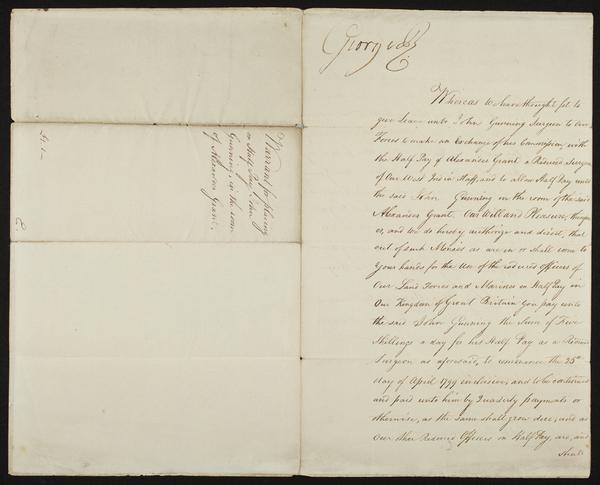 George R
Whereas We have thought fit to
give leave unto John Gunning Surgeon to Our
Forces to make an Exchange of his Commission with
the Half Pay of Alexander Grant a Reduced Surgeon
of Our West India Staff, and to allow Half Pay unto
the said John Gunning in the room of the said
Alexander Grant, Our Will and Pleasure, thereup
on, and We do hereby authorize and direct, that
out of such Monies as are in or shall come to
your hands for the Use of the reduced Officers of
Our Land Forces and Marines on Half Pay in
Our Kingdom of Great Britain you pay unto
the said John Gunning the Sum of Five
Shillings a day for his Half Pay as a Reduced
Surgeon as aforesaid, to commence the 25th
day of April 1799 inclusive, and to be continued
and paid unto him by Quarterly payments or
otherwise, as the same shall grow due, and as
Our other Reduced Officers on Half Pay, are, and
shall
Warrant for placing
on Half Pay John
Gunning, in the room
of Alexander Grant.